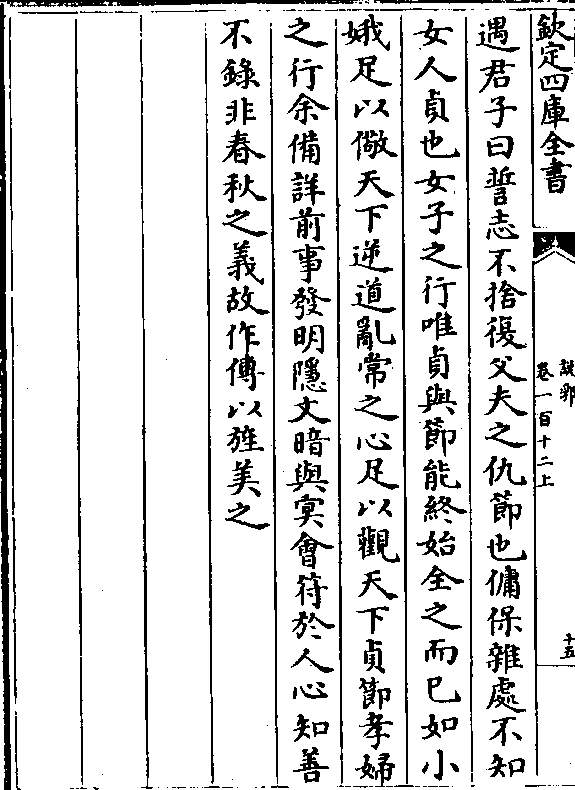 欽定四庫全書
說郛
卷一百十二上
十五
遇君子曰誓志不捨復父夫之仇節也傭保雜處不知
女人貞也女子之行唯貞與節能終始全之而已如小
娥足以儆天下逆道亂常之心足以觀天下貞節孝婦
之行余備詳前事發明隱文暗與㝠會符於人心知善
不錄非春秋之義故作傳以旌美之